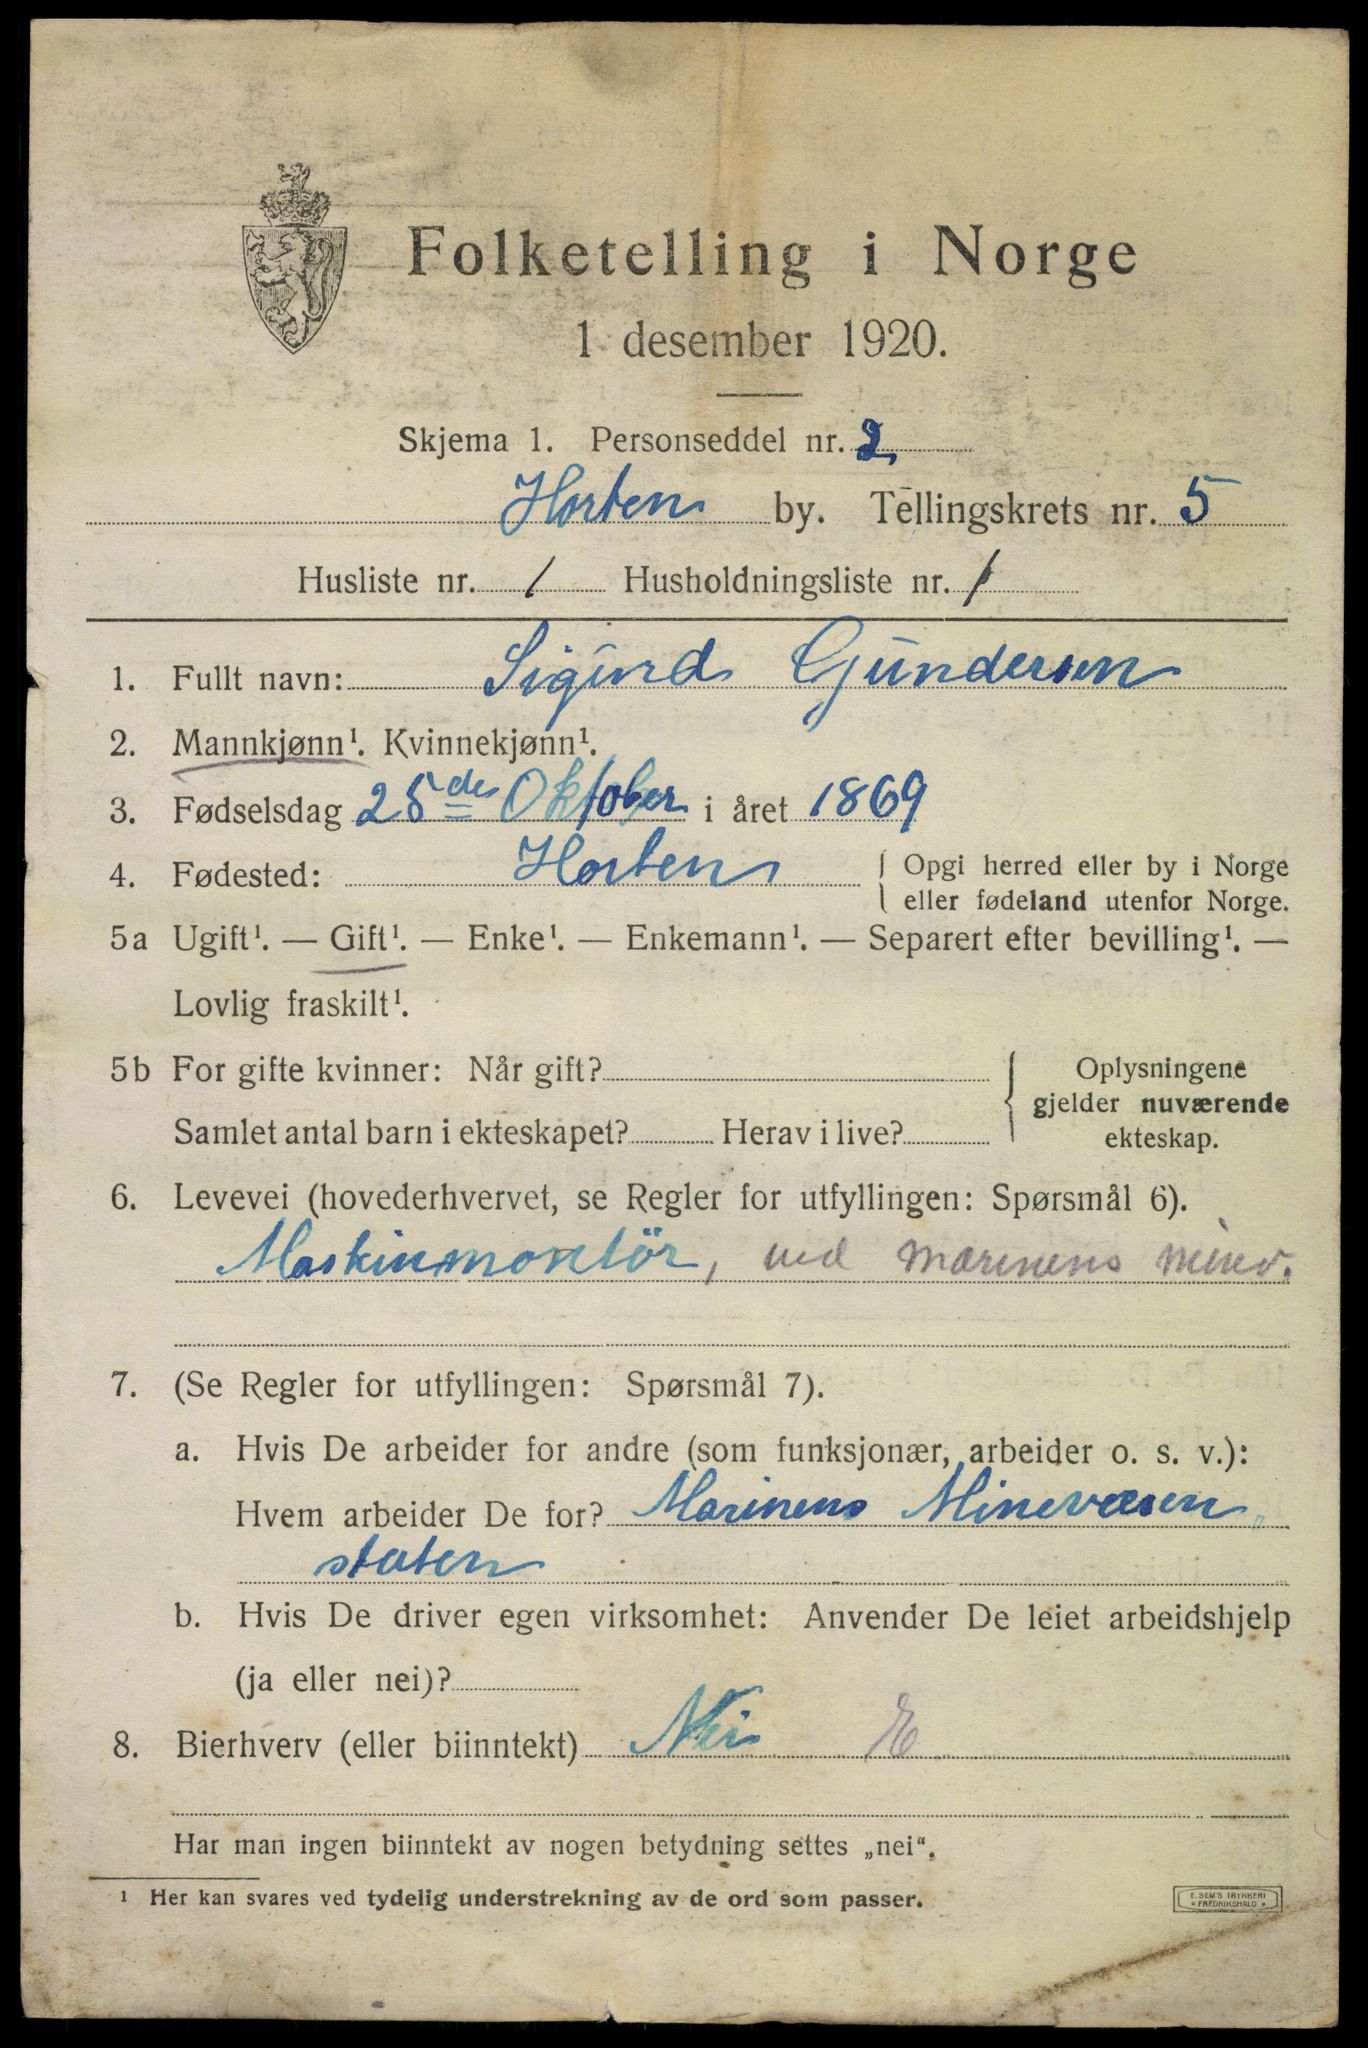 Folketelling i Norge
1 desember 1920.
Skjema 1. Personseddel nr. 2
Horten by. Tellingskrets nr. 5
Husliste nr. 1 Husholdningsliste nr. 1
1. Fullt navn: Sigurd Gundersen
2. Mannkjønn¹. Kvinnekjønn¹.
3. Fødselsdag 25de Oktober i året 1869
4. Fødested: Horten { Opgi herred eller by i Norge
eller fødeland utenfor Norge.
5a Ugift¹. — Gift¹. — Enke¹. — Enkemann¹. — Separert efter bevilling¹. —
Lovlig fraskilt¹.
5b For gifte kvinner: Når gift?
Samlet antal barn i ekteskapet? Herav i live?
Oplysningene
gjelder nuværende
ekteskap.
6. Levevei (hovederhvervet, se Regler for utfyllingen: Spørsmål 6).
Maskinmontör, ved marinens minev.
7. (Se Regler for utfyllingen: Spørsmål 7).
a. Hvis De arbeider for andre (som funksjonær, arbeider o. s. v.):
Hvem arbeider De for? Marinens Minevæsen
staten
b. Hvis De driver egen virksomhet: Anvender De leiet arbeidshjelp
(ja eller nei)?
8. Bierhverv (eller biinntekt) Nei E
Har man ingen biinntekt av nogen betydning settes „nei".
¹ Her kan svares ved tydelig understrekning av de ord som passer.
E. SEM'S TRYKKERI
* FREDRIKSHALD *